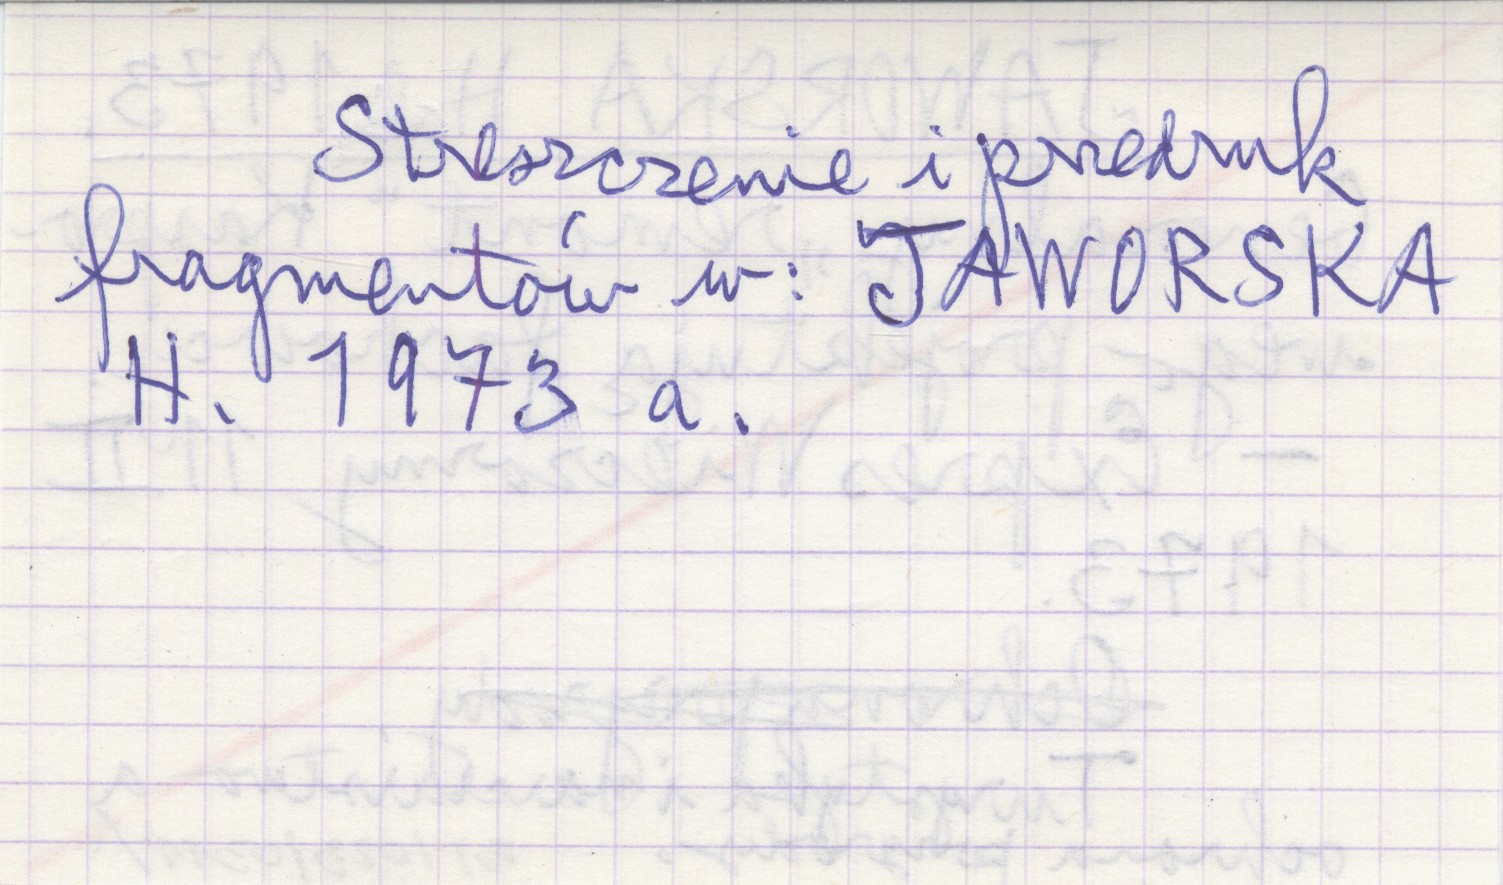 Streszczenie i przedruk
fragmentów w: JAWORSKA
H. 1973 a.